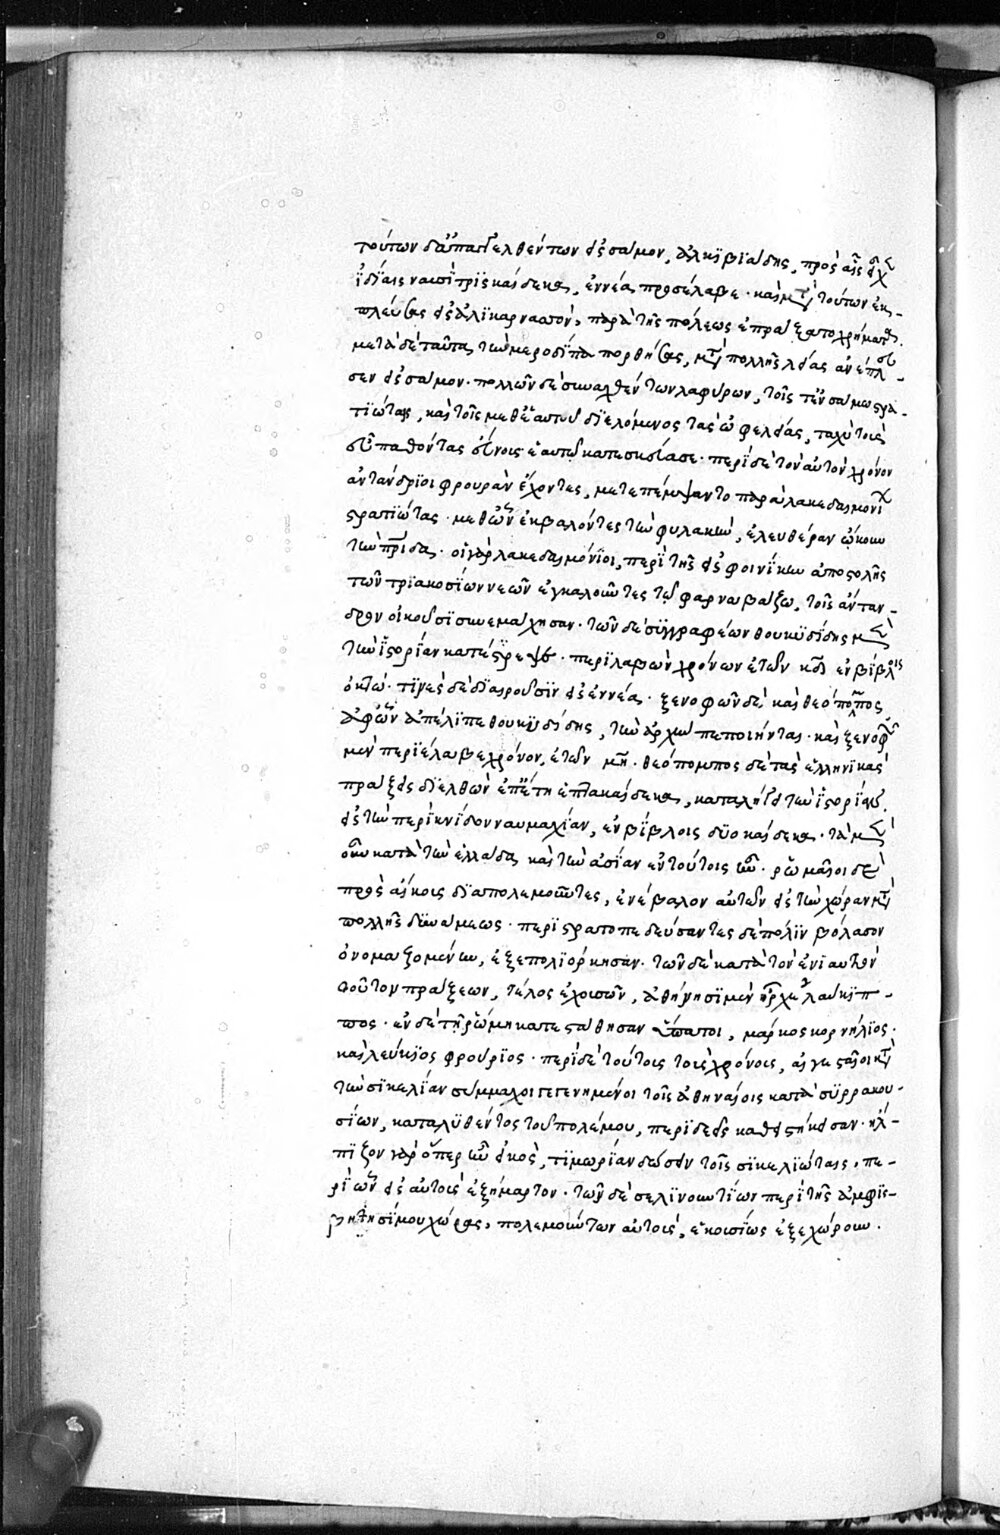 τούτων δ' ἁπάντων ἐλθόντων εἰς σάμον, ἀλκιβιάδης, πρὸς αἷς εἶχ
ἰδίαις ναυσὶ τρισκαίδεκα, ἐννέα προσέλαβε· καὶ μετὰ τούτων ἐκ-
πλεύσας εἰς ἁλικαρνασὸν, παρὰ τῆς πόλεως ἐπράξατο χρήματα.
μετὰ δὲ ταῦτα τὴν μεροπίδα πορθήσας, μετὰ πολλῆς λείας ἀνέπλευ-
σεν εἰς σάμον· πολλῶν δὲ συναχθέντων λαφύρων, τοῖς τ' ἐν σάμω στρα-
τιώταις, καὶ τοῖς μεθ' ἑαυτοῦ διελόμενος τὰς ὠφελείας, ταχὺ τοὺς
εὖ παθόντας εὔνους ἑαυτῶ κατεσκεύασε· περὶ δὲ τὸν αὐτὸν χρόνον
ἀντάνδριοι φρουρὰν ἔχοντες, μετεπέμψαντο παρὰ λακεδαιμονίων
στρατιώτας· μεθ' ὧν ἐκβαλόντες τὴν φυλακὴν, ἐλευθέραν ᾤκουν
τὴν πρίδα· οἱ γὰρ λακεδαιμόνιοι, περὶ τῆς εἰς φοινίκην ἀποστολῆς
τῶν τριακοσίων νεῶν ἐγκαλοῦντες τῶ φαρναβάζω, τοῖς ἀνταν-
δρον οἰκοῦσι συνεμάχησαν· τῶν δὲ συγγραφέων θουκυδίδης μὲν
τὴν ἱστορίαν κατέστρεψε· περιλαβὼν χρόνων ἐτῶν κβ ἐν βίβλοις
ὀκτώ· τινὲς δὲ διαιροῦσιν εἰς ἐννέα· ξενοφῶν δὲ καὶ θεόπομπος
ἀφ' ὧν ἀπέλιπε θουκυδίδης, τὴν ἀρχὴν πεποιήνται· καὶ ξενοφῶν
μὲν περιέλαβε χρόνον, ἐτῶν μη· θεόπομπος δὲ τὰς ἑλληνικὰς
πράξεις διελθὼν ἐπ' ἔτη ἑπτακαίδεκα, καταλήγει τὴν ἱστορίαν
εἰς τὴν περὶ κνίδον ναυμαχίαν, ἐν βίβλοις δυοκαίδεκα· τὰ μὲν
οὖν κατὰ τὴν ἑλλάδα καὶ τὴν ἀσίαν ἐν τούτοις ἦν· ῥωμαῖοι δὲ
πρὸς αἴκους διαπολεμοῦντες, ἐνέβαλον αὐτῶν εἰς τὴν χώραν μετὰ
πολλῆς δυνάμεως· περιστρατοπεδεύσαντες δὲ πόλιν βόλασον
ὀνομαζομένην, ἐξεπολιόρκησαν· τῶν δὲ κατὰ τὸν ἐνιαυτὸν
τοῦτον πράξεων, τέλος ἐχουσῶν, ἀθήνησι μὲν ἦρχε γλαύκιπ-
πος· ἐν δὲ τῆ ῥώμη κατεστάθησαν ὕπατοι, μάρκος κορνήλιος·
καὶ λεύκιος φρούριος· περὶ δὲ τούτους τοὺς χρόνους, αἰγεσταῖοι κατὰ
τὴν σικελίαν σύμμαχοι γεγενημένοι τοῖς ἀθηναίοις κατὰ συρρακου-
σίων, καταλυθέντος τοῦ πολέμου, περιδεεῖς καθειστήκεισαν· ἤλ-
πιζον γὰρ ὅπερ ἦν εἰκὸς, τιμωρίαν δώσειν τοῖς σικελιώταις, πε-
ρὶ ὧν εἰς αὐτοὺς ἐξήμαρτον· τῶν δὲ σελινουντίων περὶ τῆς ἀμφισ-
βητησίμου χώρας, πολεμούντων αὐτοὺς, ἑκουσίως ἐξεχώρουν·